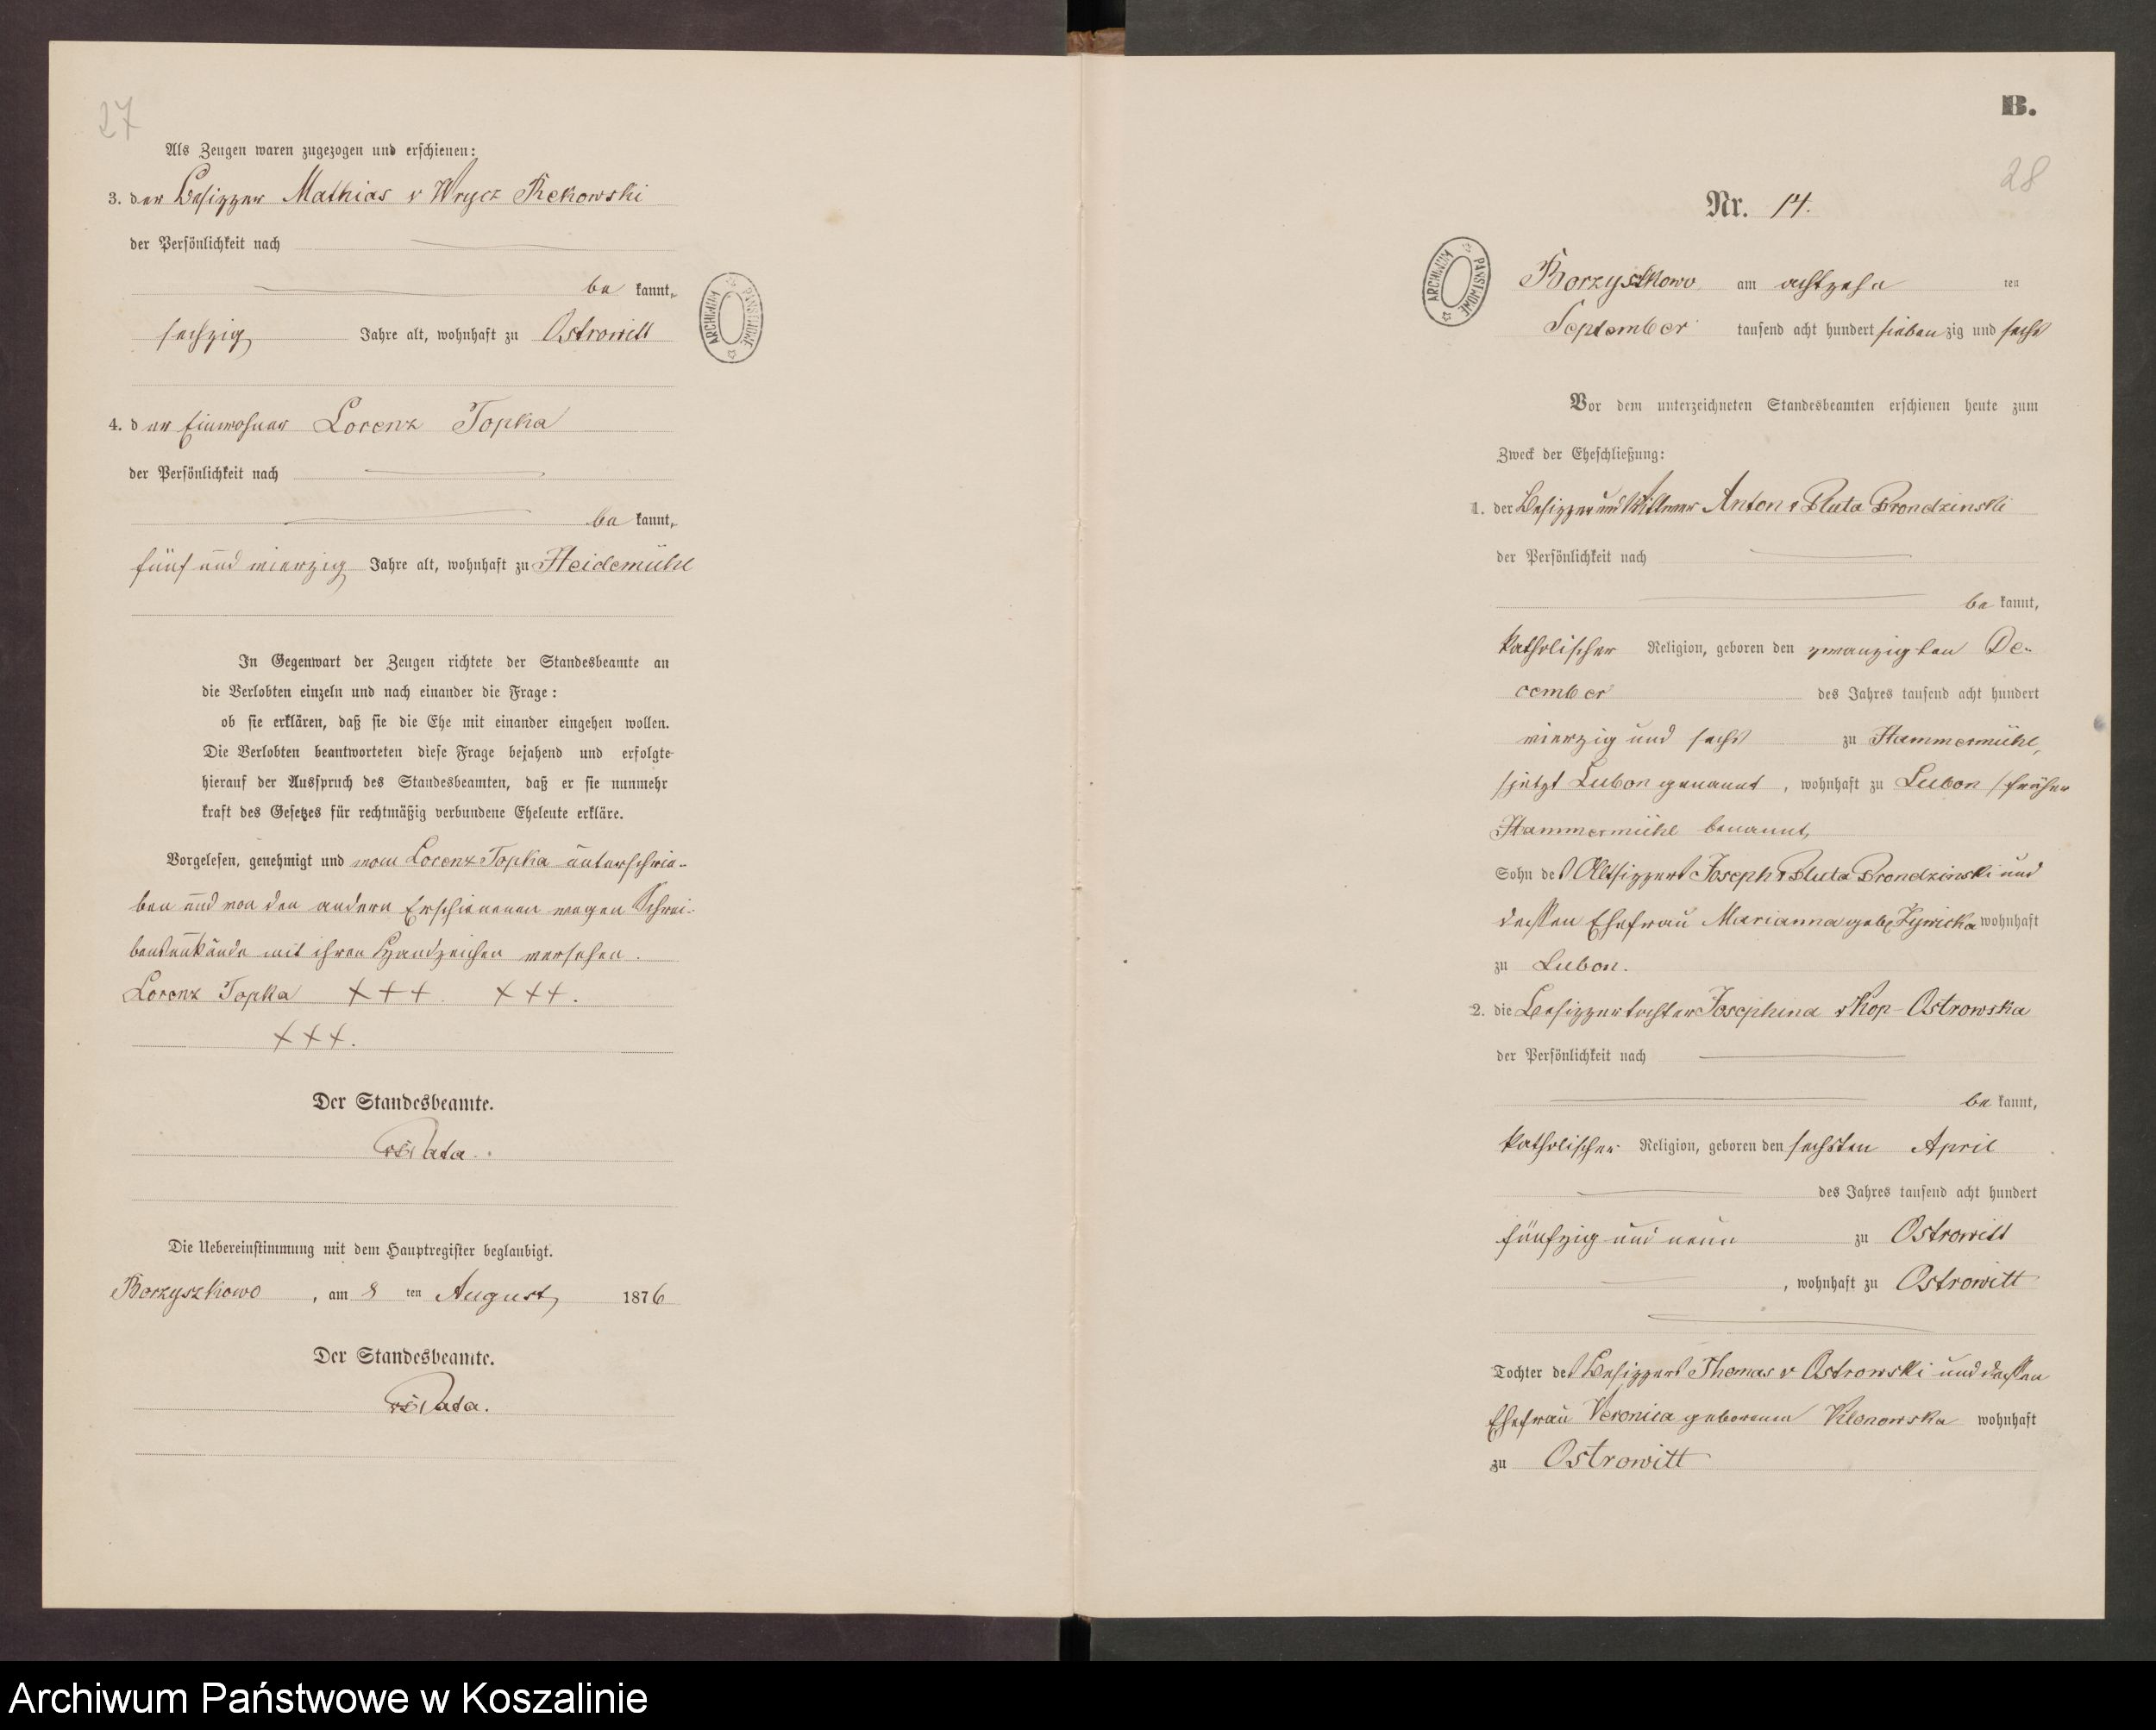 27
Als Zeugen waren zugezogen und erschienen:
3. der Besitzer Mathias v Wrycz Rekowski
der Persönlichkeit nach
be kannt,
sechzig Jahre alt, wohnhaft zu Ostrowitt
4. der Einwohner Lorenz Topka
der Persönlichkeit nach
be kannt,
fünf und vierzig Jahre alt, wohnhaft zu Heidemühl
In Gegenwart der Zeugen richtete der Standesbeamte an
die Verlobten einzeln und nach einander die Frage:
ob sie erklären, daß sie die Ehe mit einander eingehen wollen.
Die Verlobten beantworteten diese Frage bejahend und erfolgte
hierauf der Ausspruch des Standesbeamten, daß er sie nunmehr
kraft des Gesetzes für rechtmäßig verbundene Eheleute erkläre.
Vorgelesen, genehmigt und vom Lorenz Topka unterschrie-
ben und von den andern Erschienenen wegen Schrei-
bensunkunde mit ihren Handzeichen versehen.
Lorenz Topka +++. +++.
+++.
Der Standesbeamte.
Die Uebereinstimmung mit dem Hauptregister beglaubigt.
Borzyszkowo, am 8 ten August 1876
Der Standesbeamte.
ARCHIWUM PAŃSTWOWE
B.
28
Nr. 14.
ARCHIWUM PAŃSTWOWE
Borzyszkowo am achtzehn ten
September tausend acht hundert sieben zig und sechs
Vor dem unterzeichneten Standesbeamten erschienen heute zum
Zweck der Eheschließung:
1. der Besitzer und Wittwer Anton v Pluta Prondzinski
der Persönlichkeit nach
be kannt,
katholischer Religion, geboren den zwanzigsten De-
cember des Jahres tausend acht hundert
vierzig und sechs zu Hammermühl,
/jetzt Lubon genannt, wohnhaft zu Lubon /früher
Hammermühl benannt,
Sohn des Altsitzers Joseph v Pluta Prondzinski und
dessen Ehefrau Marianna geb. Zywicka wohnhaft
zu Lubon.
2. die Besitzertochter Josephina v Kop-Ostrowska
der Persönlichkeit nach
be kannt,
katholischer Religion, geboren den sechsten April
des Jahres tausend acht hundert
fünfzig und neun zu Ostrowitt
, wohnhaft zu Ostrowitt
Tochter des Besitzers Thomas v Ostrowski und dessen
Ehefrau Veronica geborenen Klonowska wohnhaft
zu Ostrowitt
Archiwum Państwowe w Koszalinie